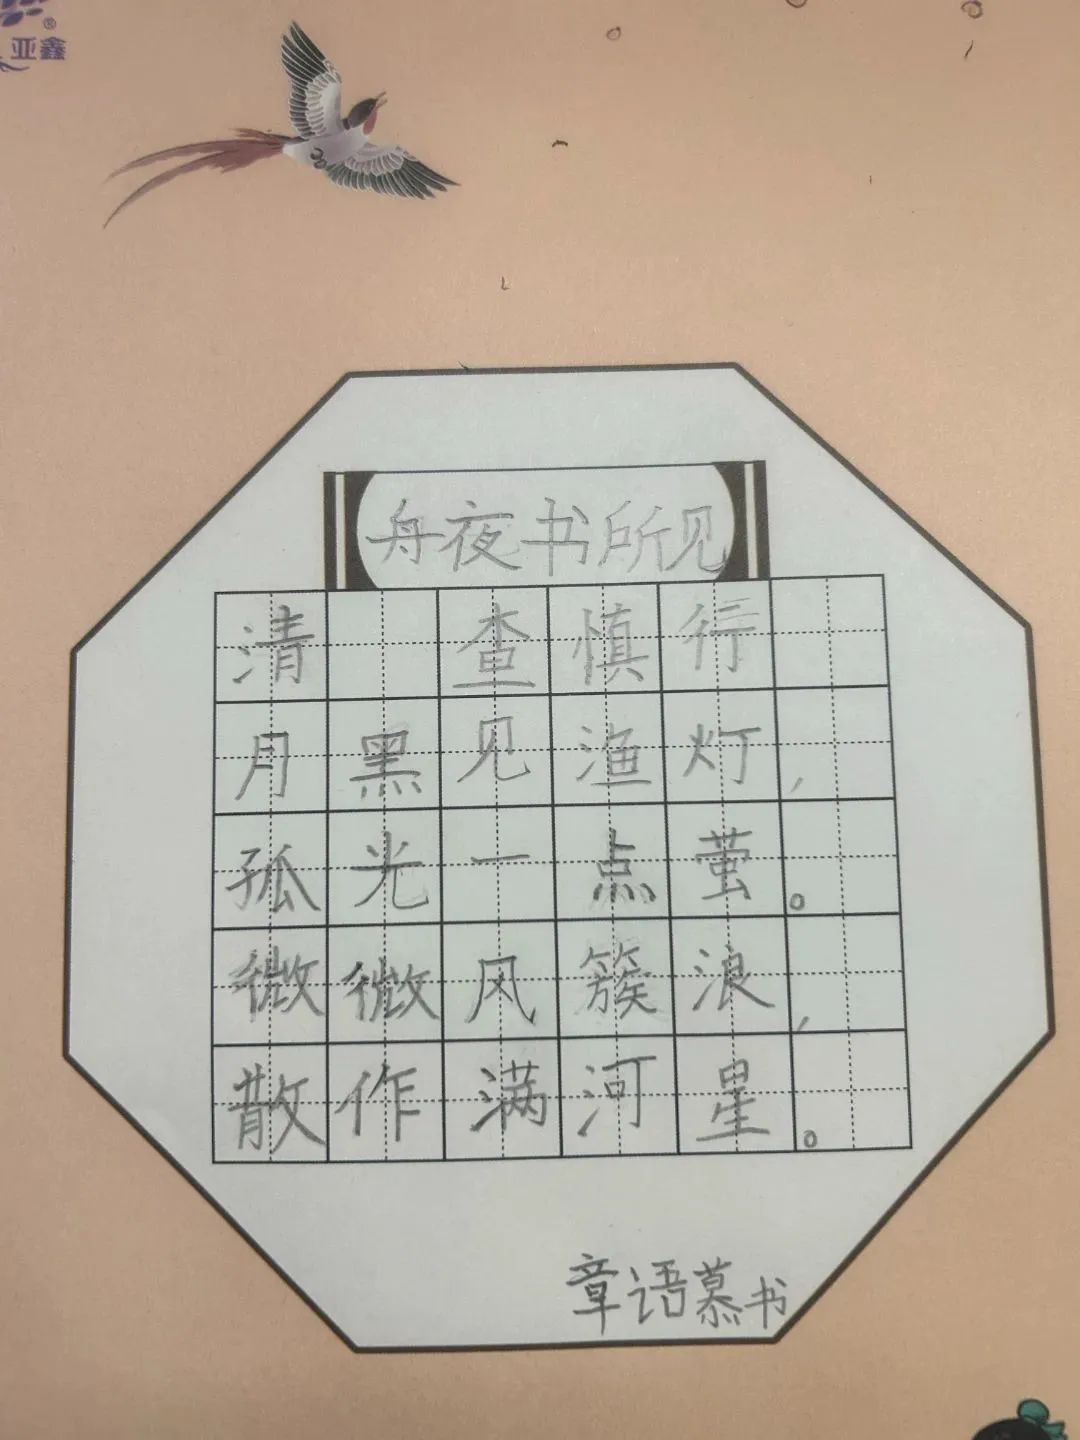 亚鑫®
舟夜书所见
清 查慎行
月黑见渔灯，
孤光一点萤。
微微风簇浪，
散作满河星。
章语慕书